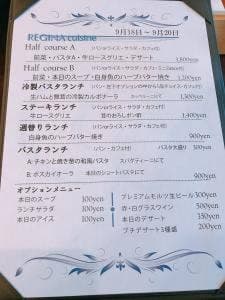 9月18日～9月20日
REGINA cuisine
Half course A (パンorライス・サラダ・カフェ付)
前菜・パスタA・牛ロースグリエ・デザート 1,800yen
Half course B (パンorライス・サラダ・カフェ・ミニ付)
前菜・本日のスープ・白身魚のハーブバター焼き 1,200yen
冷製パスタランチ
生ハムと無茸の冷製カルボナーラ 1,500yen
ステーキランチ (パンorライス・サラダ・カフェ付)
牛ロースグリエ 茸のおろしポン酢 1,400yen
週替りランチ (パンorライス・サラダ・カフェ付)
白身魚のハーブバター焼き 900yen
パスタランチ (パン・カフェ付) パスタ大盛り 300yen
A: チキンと焼き葱の和風パスタ スパゲティーニにて
B: ボスカイオーラ 本日のショートパスタにて 900yen
オプションメニュー
本日のスープ 100yen
ランチサラダ 100yen
本日のアイス 100yen
プレミアムモルツ生ビール 300yen
赤・白グラスワイン 500yen
本日のデザート 350yen
プチデザート3種盛 200yen